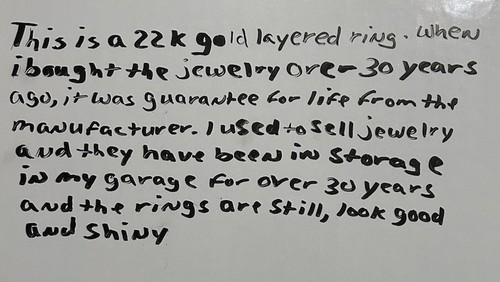 This is a 22k gold layered ring. when
i bought the jewelry over 30 years
ago, it was guarantee for life from the
manufacturer. I used to sell jewelry
and they have been in storage
in my garage for over 30 years
and the rings are still, look good
and shiny